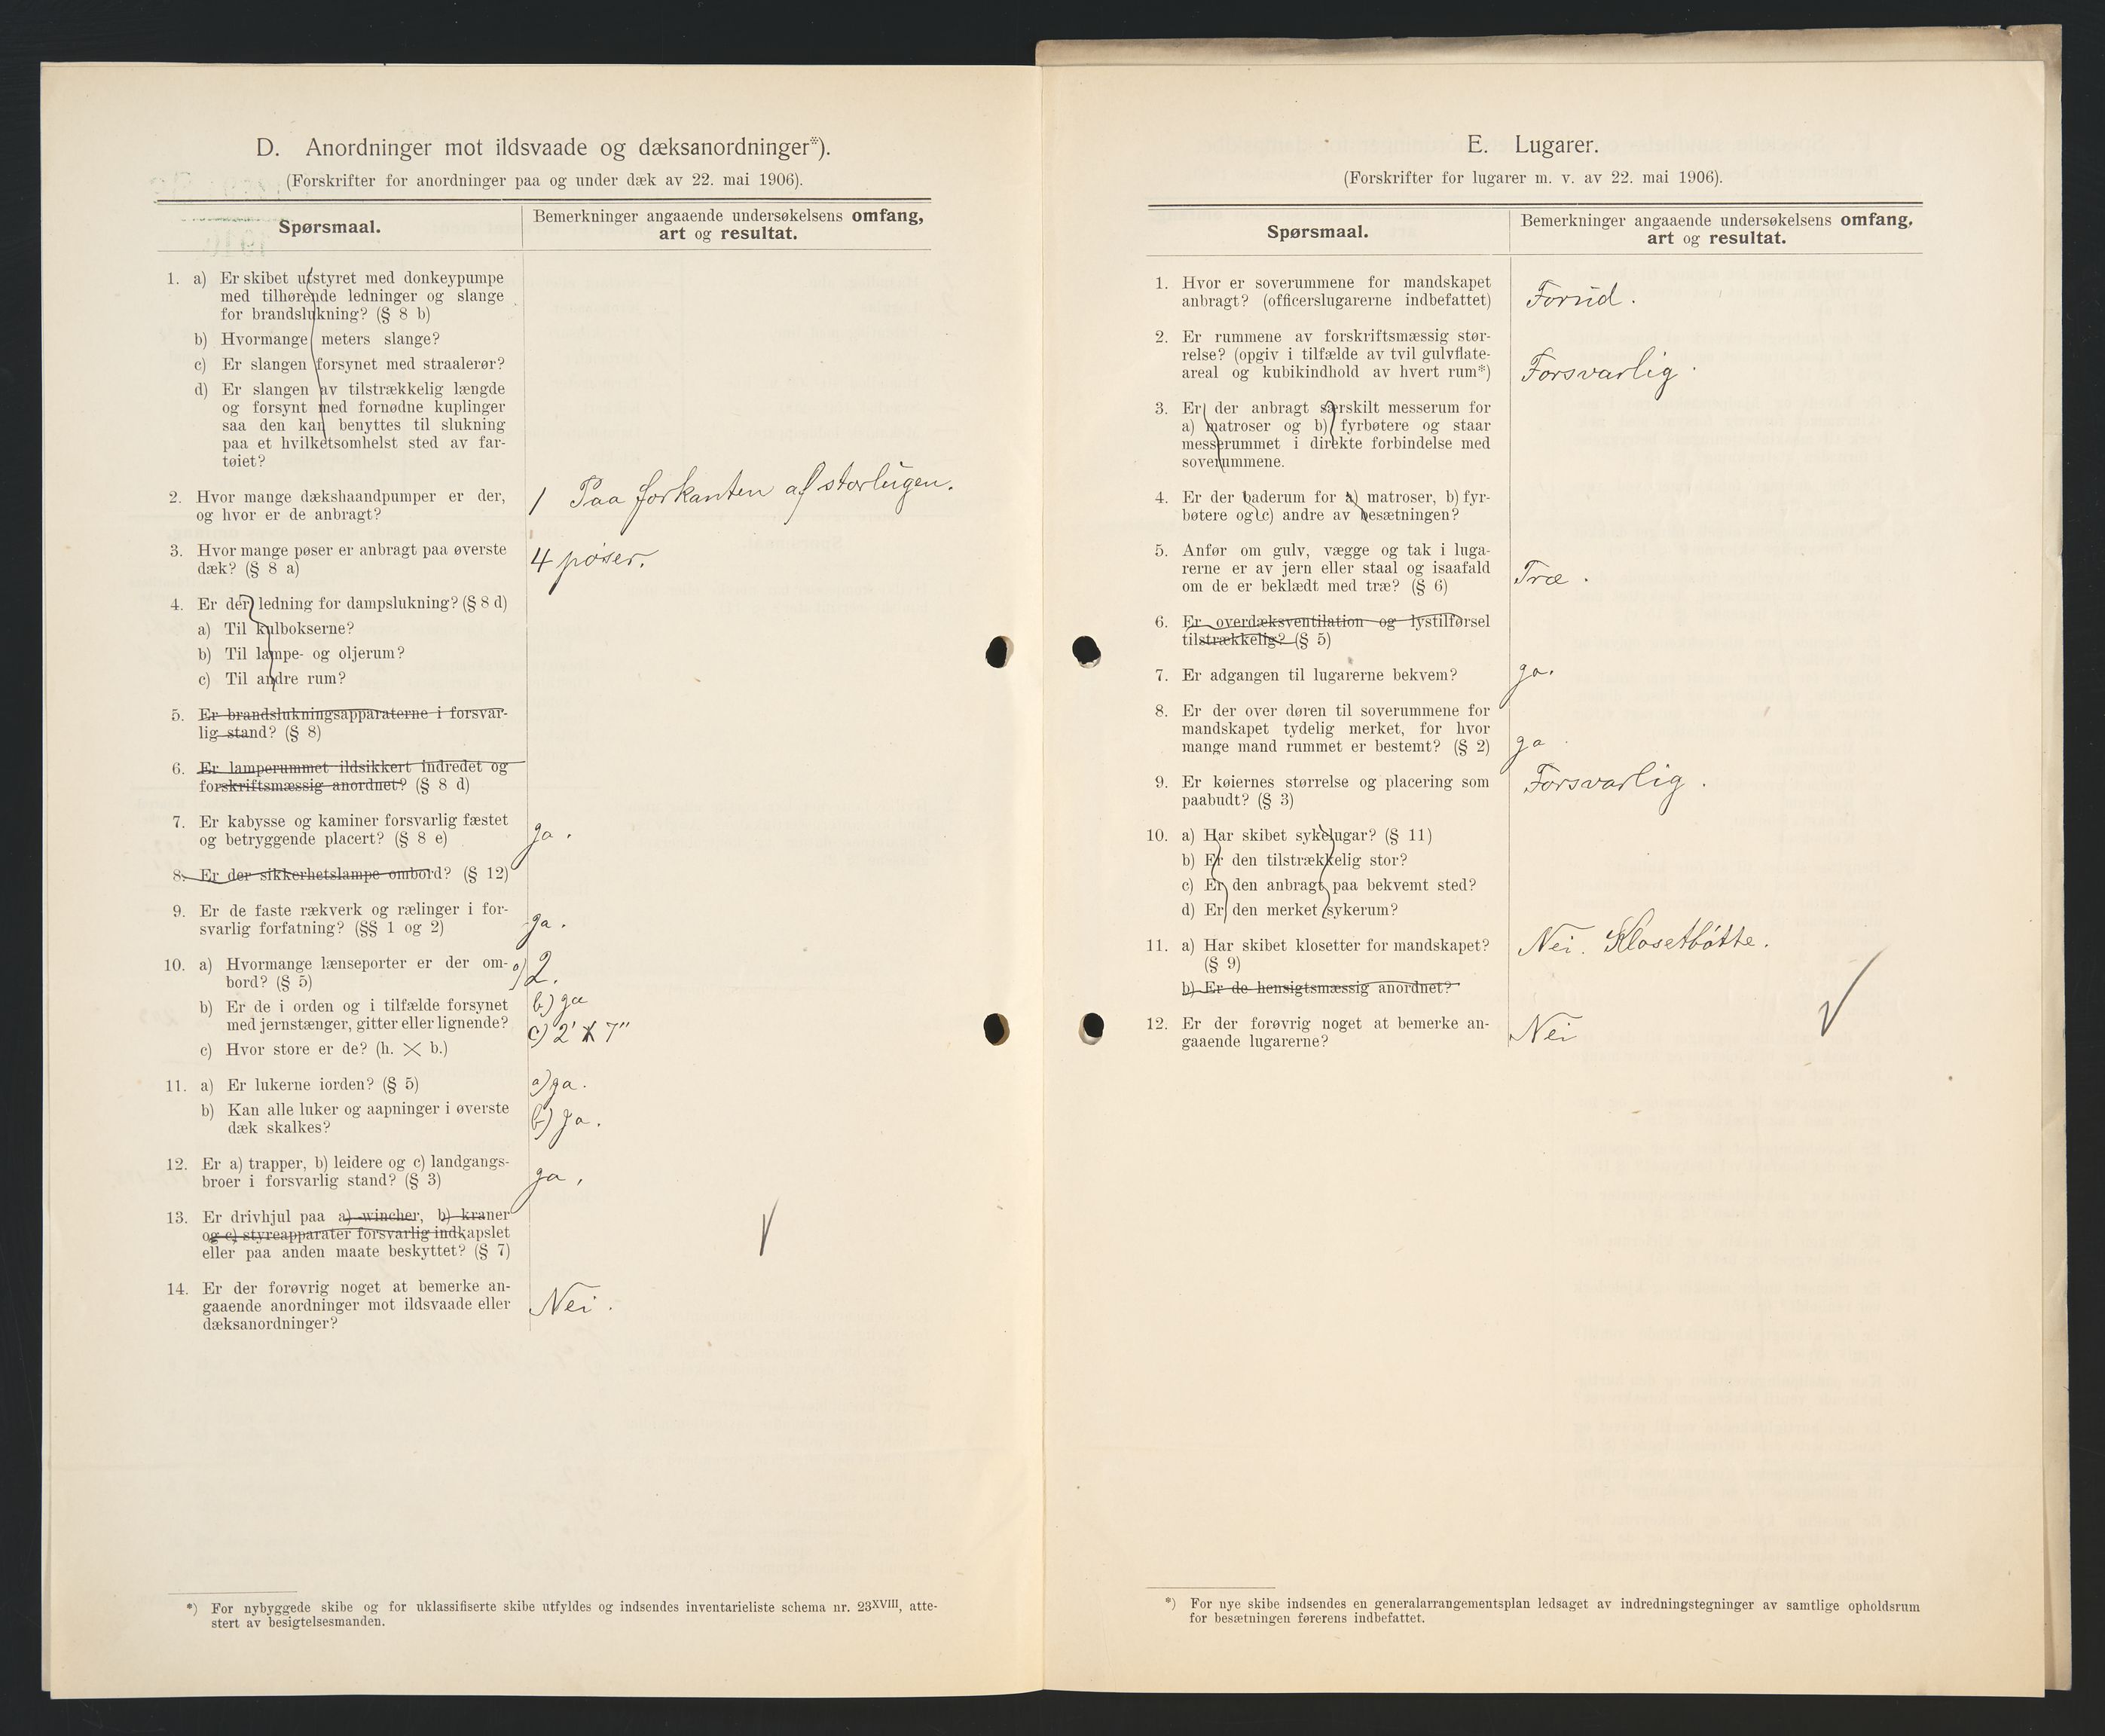 D. Anordninger mot ildsvaade og dæksanordninger*).
(Forskrifter for anordninger paa og under dæk av 22. mai 1906).
Spørsmaal.
Bemerkninger angaaende undersøkelsens omfang,
art og resultat.
1. a) Er skibet utstyret med donkeypumpe
med tilhørende ledninger og slange
for brandslukning? (§ 8 b)
b) Hvormange meters slange?
c) Er slangen forsynet med straalerør?
d) Er slangen av tilstrækkelig længde
og forsynt med fornødne kuplinger
saa den kan benyttes til slukning
paa et hvilketsomhelst sted av far-
tøiet?
2. Hvor mange dækshaandpumper er der,
og hvor er de anbragt?
1 Paa forkanten af storlugen.
3. Hvor mange pøser er anbragt paa øverste
dæk? (§ 8 a)
4 pøser.
4. Er der ledning for dampslukning? (§ 8 d)
a) Til kulbokserne?
b) Til lampe- og oljerum?
c) Til andre rum?
5. Er brandslukningsapparaterne i forsvar-
lig stand? (§ 8)
6. Er lamperummet ildsikkert indredet og
forskriftsmæssig anordnet? (§ 8 d)
7. Er kabysse og kaminer forsvarlig fæstet
og betryggende placert? (§ 8 e)
ja.
8. Er der sikkerhetslampe ombord? (§ 12)
9. Er de faste rækverk og rælinger i for-
svarlig forfatning? (§§ 1 og 2)
ja.
10. a) Hvormange lænseporter er der om-
bord? (§ 5)
a) 2.
b) Er de i orden og i tilfælde forsynet
med jernstænger, gitter eller lignende?
b) ja
c) Hvor store er de? (h. × b.)
c) 2' × 7"
11. a) Er lukerne iorden? (§ 5)
a) ja.
b) Kan alle luker og aapninger i øverste
dæk skalkes?
b) ja.
12. Er a) trapper, b) leidere og c) landgangs-
broer i forsvarlig stand? (§ 3)
ja.
13. Er drivhjul paa a) wincher, b) kraner
og c) styreapparater forsvarlig indkapslet
eller paa anden maate beskyttet? (§ 7)
14. Er der forøvrig noget at bemerke an-
gaaende anordninger mot ildsvaade eller
dæksanordninger?
Nei.
*) For nybyggede skibe og for uklassifiserte skibe utfyldes og indsendes inventarieliste schema nr. 23XVIII, atte-
stert av besigtelsesmanden.
E. Lugarer.
(Forskrifter for lugarer m. v. av 22. mai 1906).
Spørsmaal.
Bemerkninger angaaende undersøkelsens omfang,
art og resultat.
1. Hvor er soverummene for mandskapet
anbragt? (officerslugarerne indbefattet)
Forud.
2. Er rummene av forskriftsmæssig stør-
relse? (opgiv i tilfælde av tvil gulvflate-
areal og kubikindhold av hvert rum*)
Forsvarlig.
3. Er der anbragt særskilt messerum for
a) matroser og b) fyrbøtere og staar
messerummet i direkte forbindelse med
soverummene.
4. Er der baderum for a) matroser, b) fyr-
bøtere og c) andre av besætningen?
5. Anfør om gulv, vægge og tak i luga-
rerne er av jern eller staal og isaafald
om de er beklædt med træ? (§ 6)
Træ.
6. Er overdæksventilation og lystilførsel
tilstrækkelig? (§ 5)
7. Er adgangen til lugarerne bekvem?
ja.
8. Er der over døren til soverummene for
mandskapet tydelig merket, for hvor
mange mand rummet er bestemt? (§ 2)
ja
9. Er køiernes størrelse og placering som
paabudt? (§ 3)
Forsvarlig.
10. a) Har skibet sykelugar? (§ 11)
b) Er den tilstrækkelig stor?
c) Er den anbragt paa bekvemt sted?
d) Er den merket sykerum?
11. a) Har skibet klosetter for mandskapet?
(§ 9)
Nei. Klosetbøtte.
b) Er de hensigtsmæssig anordnet?
12. Er der forøvrig noget at bemerke an-
gaaende lugarerne?
Nei
*) For nye skibe indsendes en generalarrangementsplan ledsaget av indredningstegninger av samtlige opholdsrum
for besætningen førerens indbefattet.